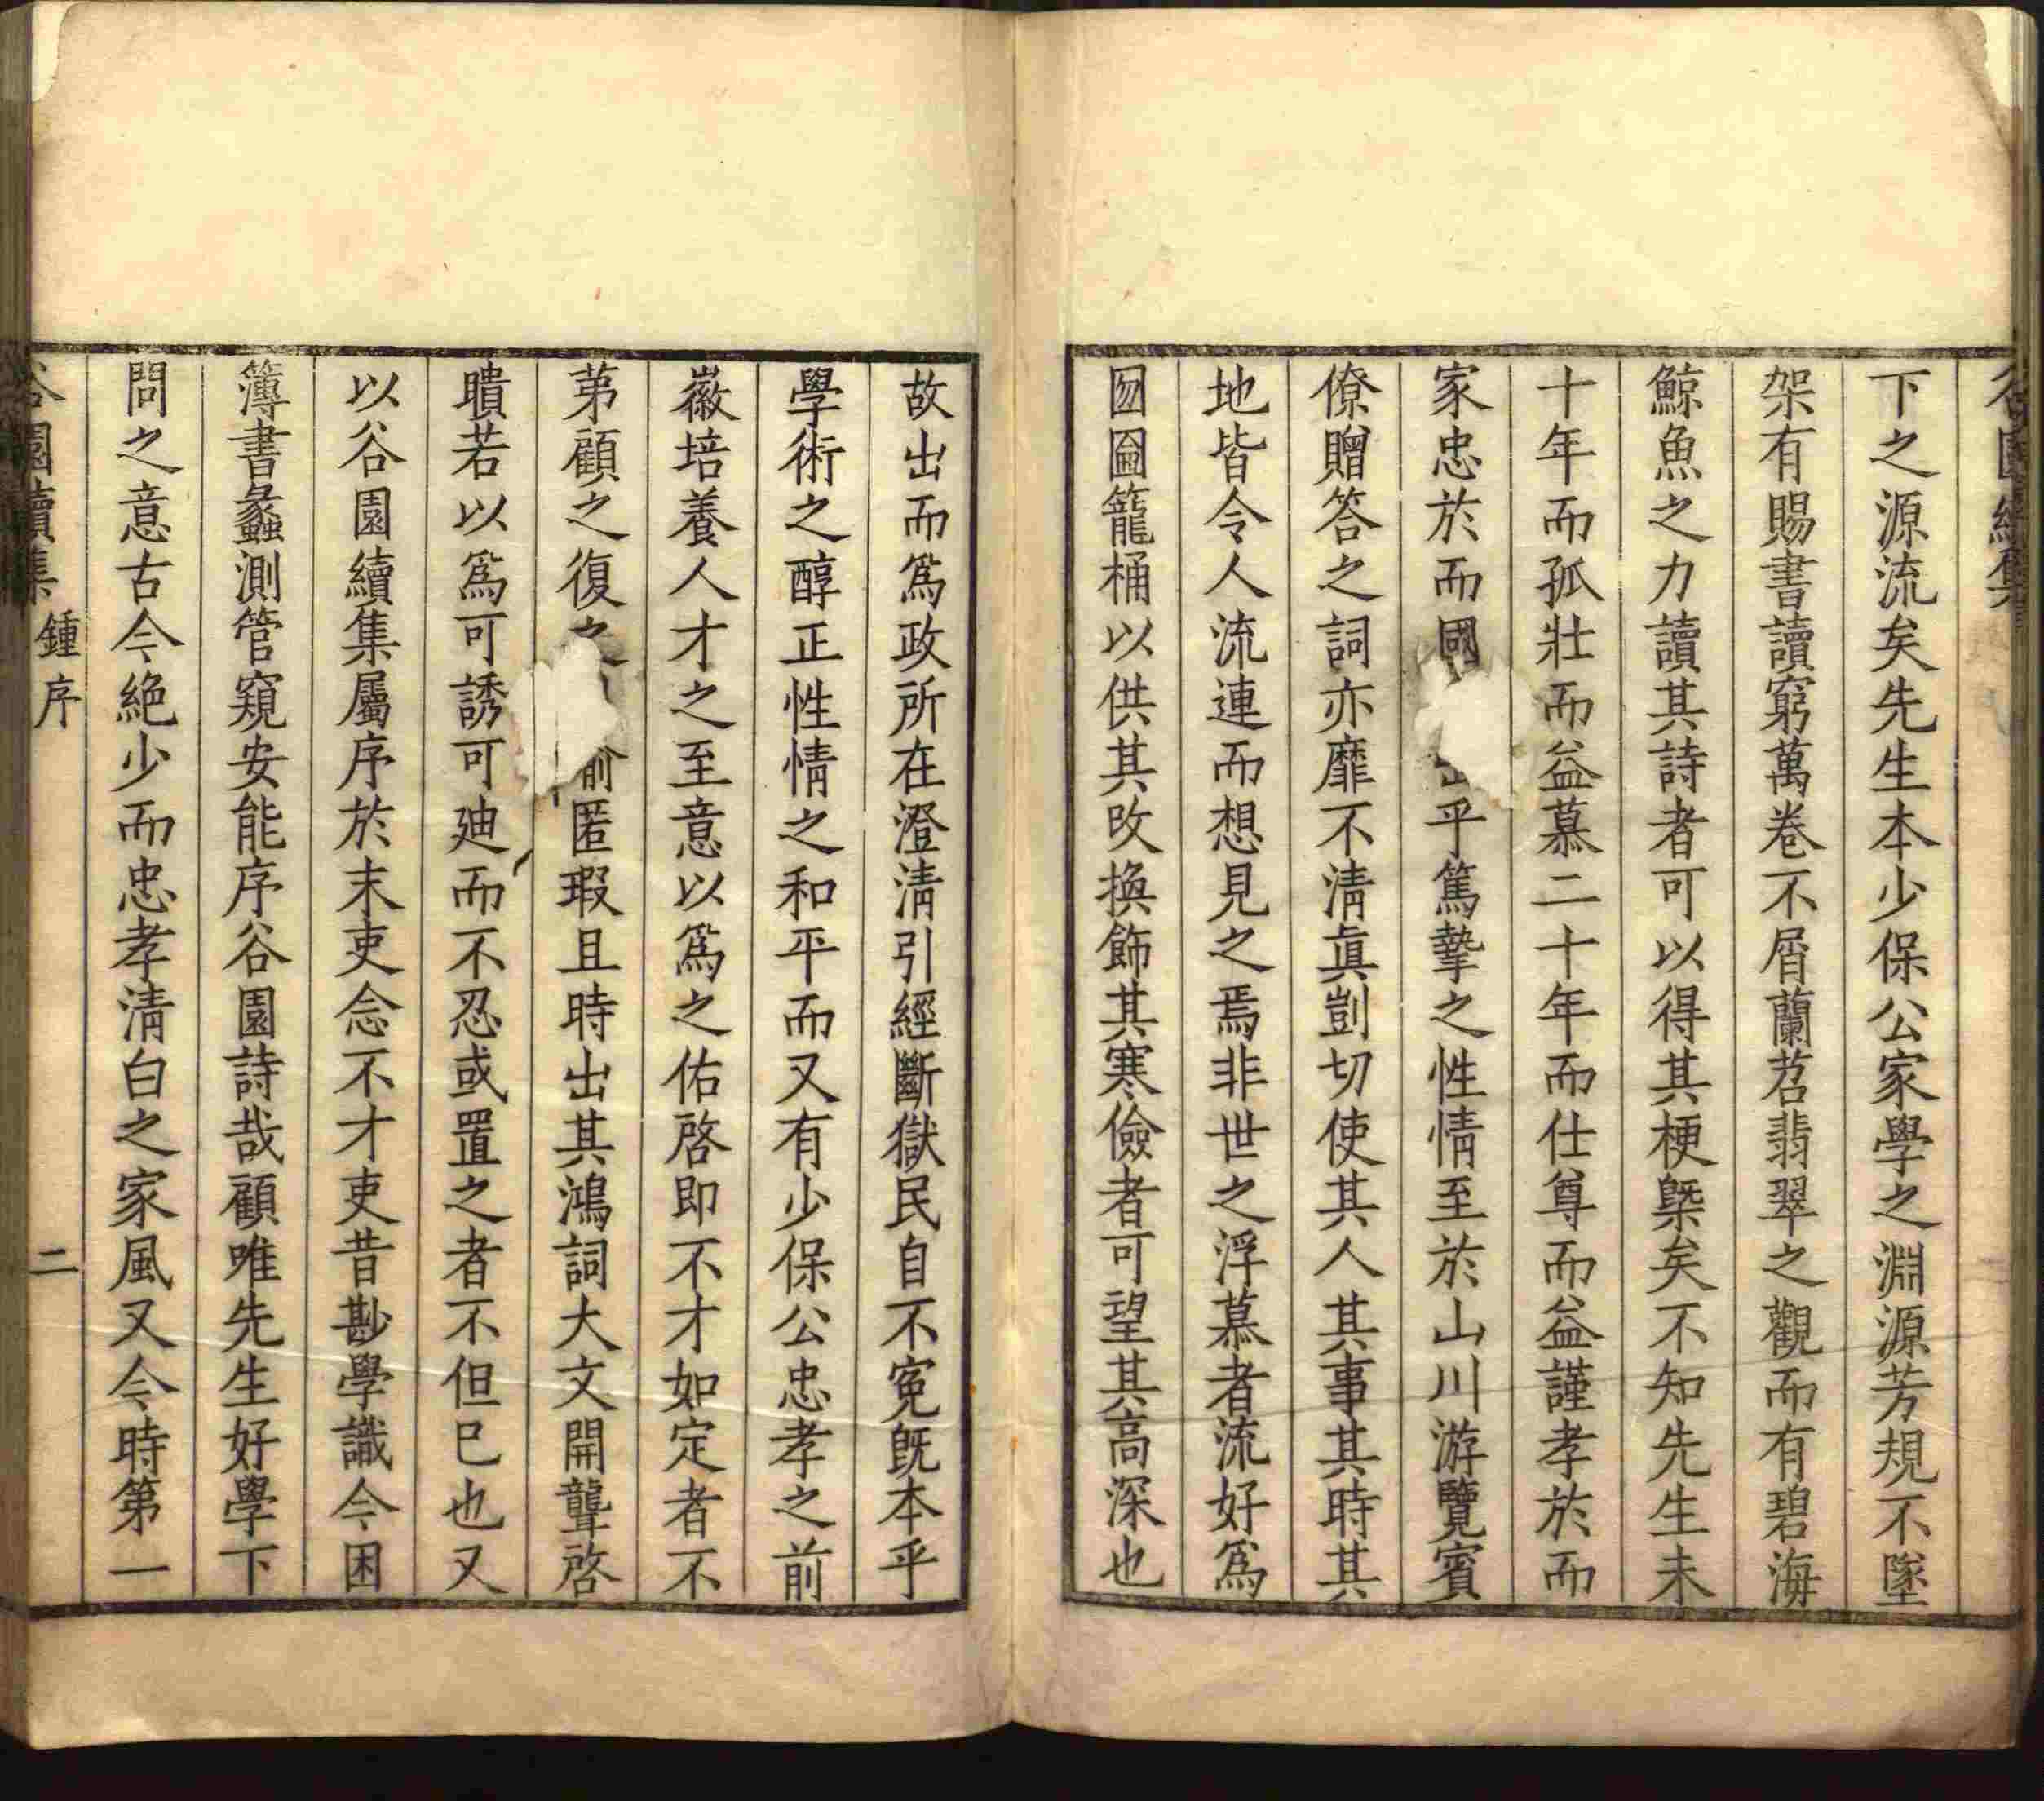 谷園續集
下之源流矣先生本少保公家學之淵源芳規不墜
架有賜書讀窮萬卷不屑蘭苕翡翠之觀而有碧海
鯨魚之力讀其詩者可以得其梗槩矣不知先生未
十年而孤壯而益慕二十年而仕尊而益謹孝於而
家忠於而國乎篤摯之性情至於山川游覽賓
僚贈答之詞亦靡不淸眞剴切使其人其事其時其
地皆令人流連而想見之焉非世之浮慕者流好爲
囫圇籠桶以供其攺換飾其寒儉者可望其高深也
故出而爲政所在澄淸引經斷獄民自不寃旣本乎
學術之醇正性情之和平而又有少保公忠孝之前
徽培養人才之至意以爲之佑啓即不才如定者不
苐顧之復之匿瑕且時出其鴻詞大文開聾啓
瞶若以爲可誘可廸而不忍或置之者不但已也又
以谷園續集屬序於末吏念不才吏昔尠學識今困
簿書蠡測管窺安能序谷園詩哉顧唯先生好學下
問之意古今絶少而忠孝淸白之家風又今時第一
谷園續集 鍾序 二